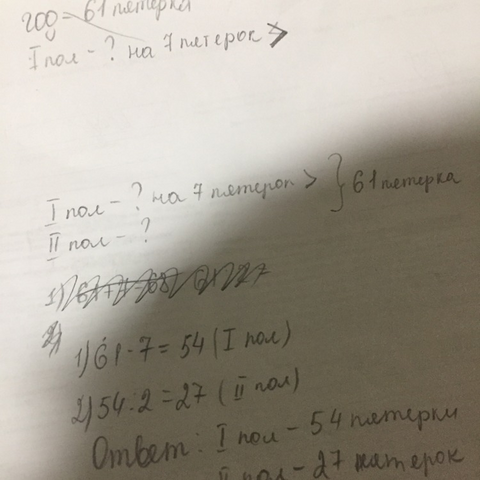 год = 61 пятерка
I пол - ? на 7 пятерок >
I пол - ? на 7 пятерок > } 61 пятерка
II пол - ?
1) 61 - 7 = 54 (I пол)
2) 54 : 2 = 27 (II пол)
Ответ: I пол - 54 пятерки
II пол - 27 пятерок